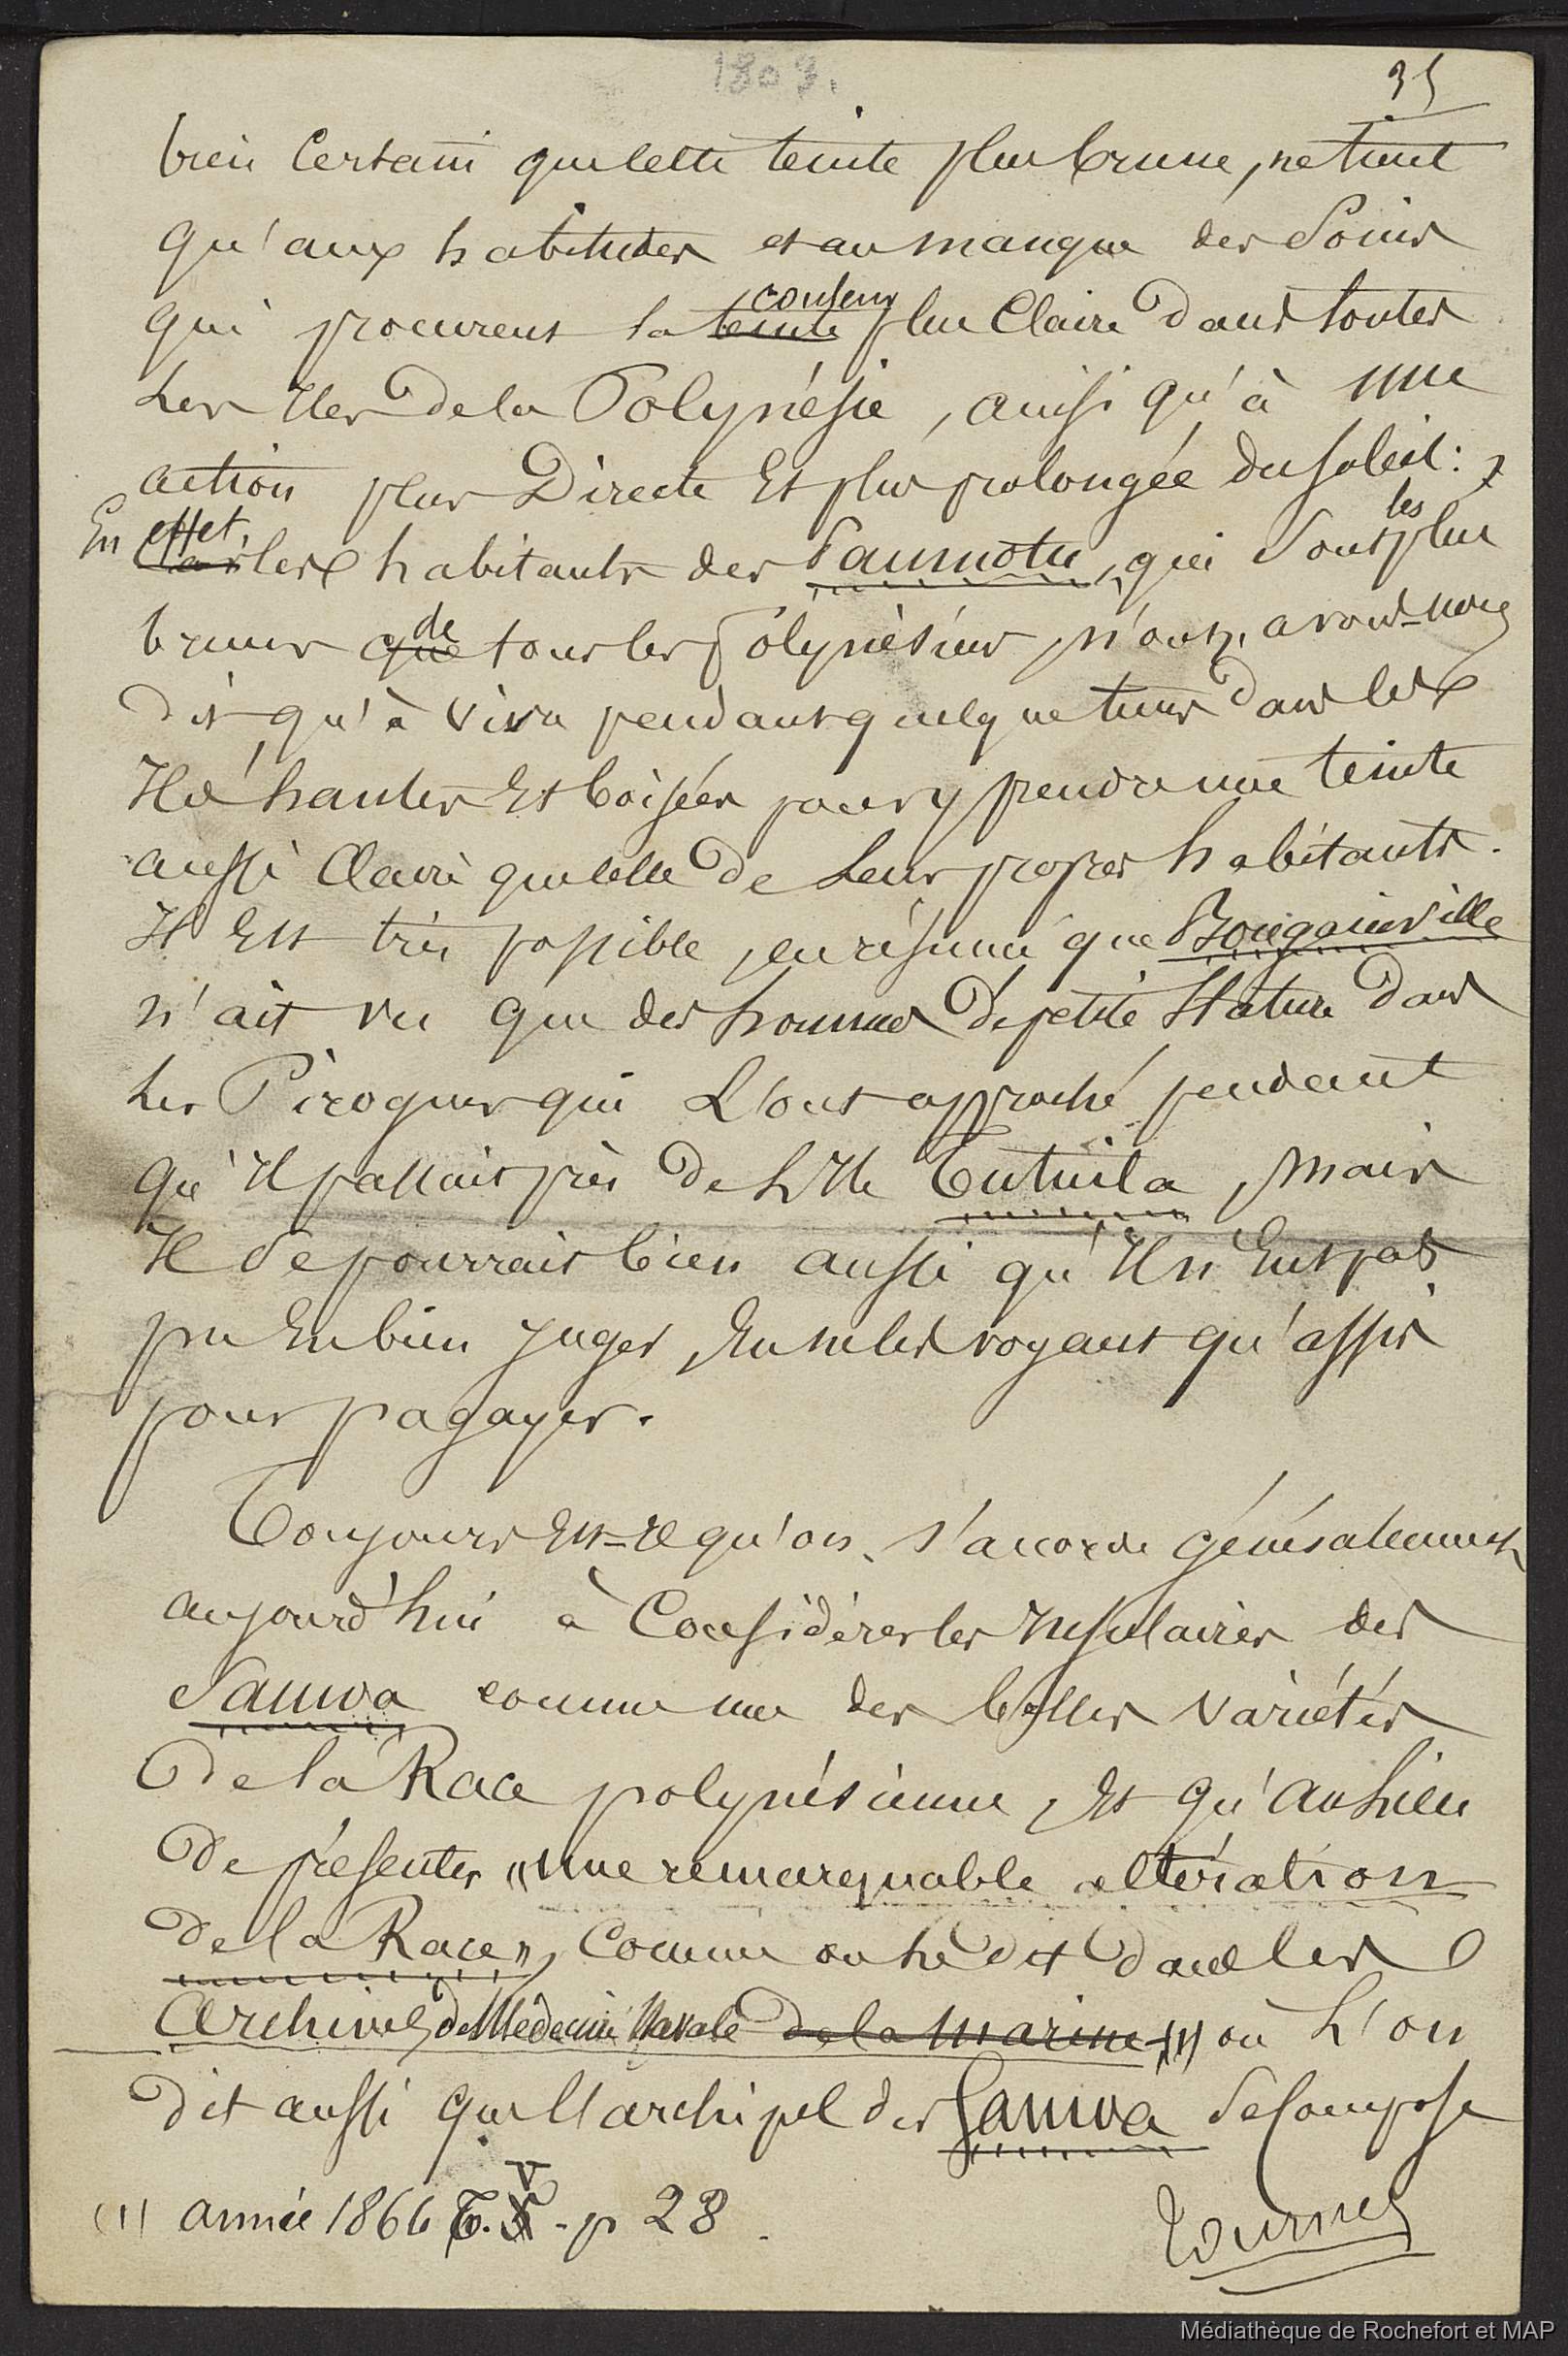 1809.
35
bien certain que cette teinte plus brune, ne tient
qu'aux habitudes et au manque des soins
couleur
qui procurent la teinte plus claire dans toutes
les Iles de la Polynésie, ainsi qu'à une
action plus Directe Et plus prolongée du soleil :
En effet, les
Car les habitants des Paumotu, qui sont plus
de
bruns que tous les Polynésiens, n'ont, avons-nous
dit qu'à vivre pendant quelque tems dans les
Iles hautes Et boisées pour y prendre une teinte
aussi Claire que celle de leurs propres habitants.
Il Est très possible, en résumé que Bougainville
n'ait vu que des hommes de petite Stature dans
les Pirogues qui L'ont approché pendant
qu'Il passait près de L'Ile Tutuila, mais
Il se pourrait bien aussi qu'Il n'Eut pas
pu En bien juger, En ne les voyant qu'assis
pour pagayer.
Toujours Est-Il qu'on s'accorde généralement
aujourd'hui à Considérer les Insulaires des
Samoa comme une des belles variétés
De la Race polynésienne, Et qu'au lieu
De présenter "une remarquable altération
de la Race", Comme on le dit dans les
Archives de Médecine Navale de la marine (1) où L'on
dit aussi que L'archipel des Samoa se compose
V
(1) année 1866 T. 5 - p 28.
Tournez
Médiathèque de Rochefort et MAP